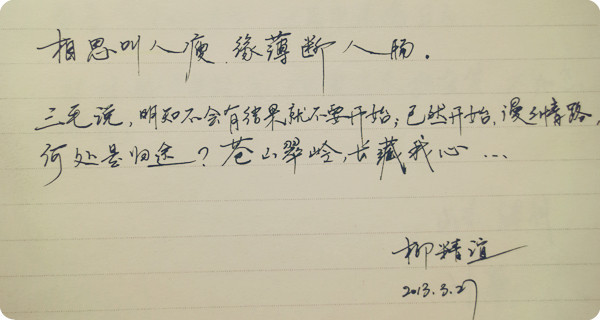 相思叫人瘦，缘薄断人肠。
三毛说，明知不会有结果就不要开始；已然开始，漫漫情路，
何处是归途？苍山翠岭，长藏我心…
柳精谊
2013.3.27